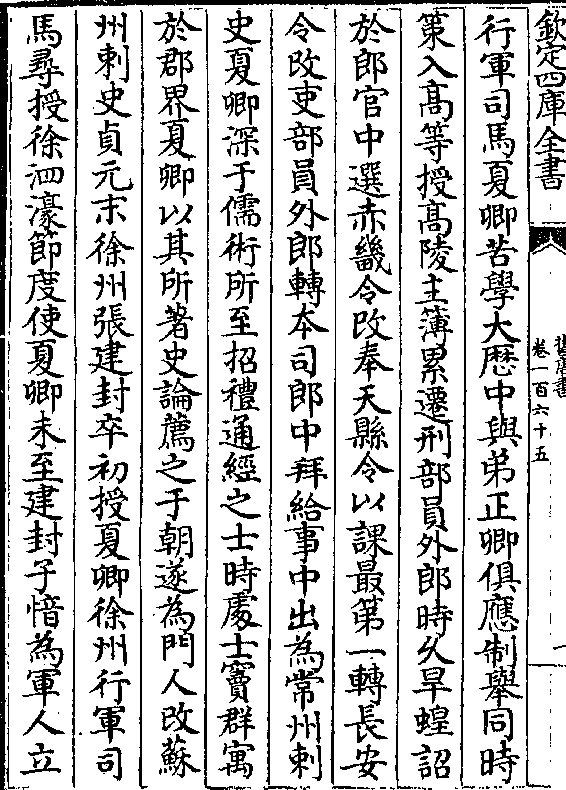 欽定四庫全書
舊唐書
卷一百六十五
行軍司馬夏卿苦學大歴中與弟正卿俱應制舉同時
策入髙等授髙陵主簿累遷刑部員外郎時久旱蝗詔
於郎官中選赤畿令改奉天縣令以課最第一轉長安
令改吏部員外郎轉本司郎中拜給事中出為常州刺
史夏卿深于儒術所至招禮通經之士時處士竇群寓
於郡界夏卿以其所著史論薦之于朝遂為門人改蘇
州刺史貞元末徐州張建封卒初授夏卿徐州行軍司
馬尋授徐泗濠節度使夏卿未至建封子愔為軍人立